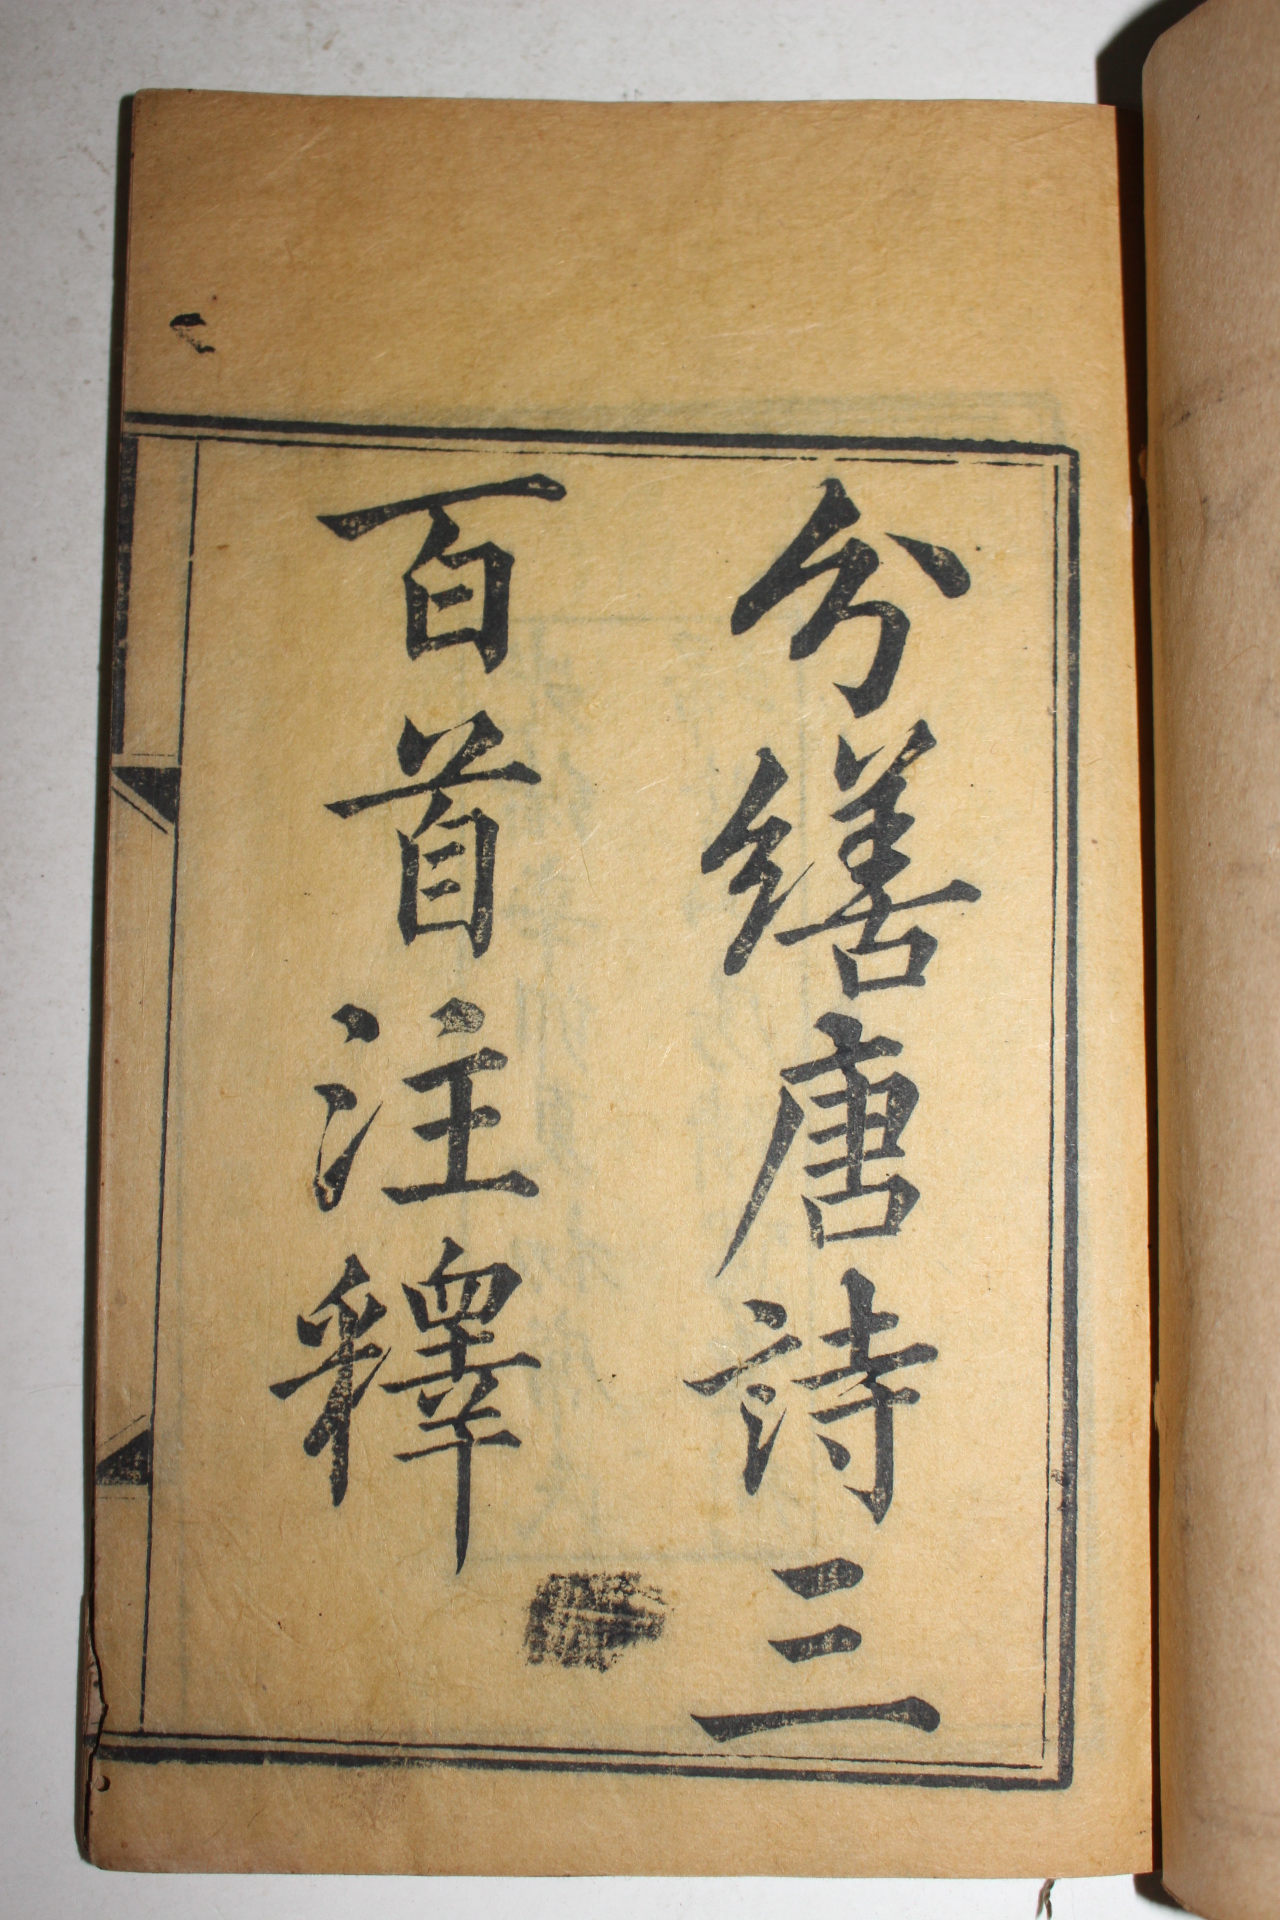 分繕唐詩三
百首注釋